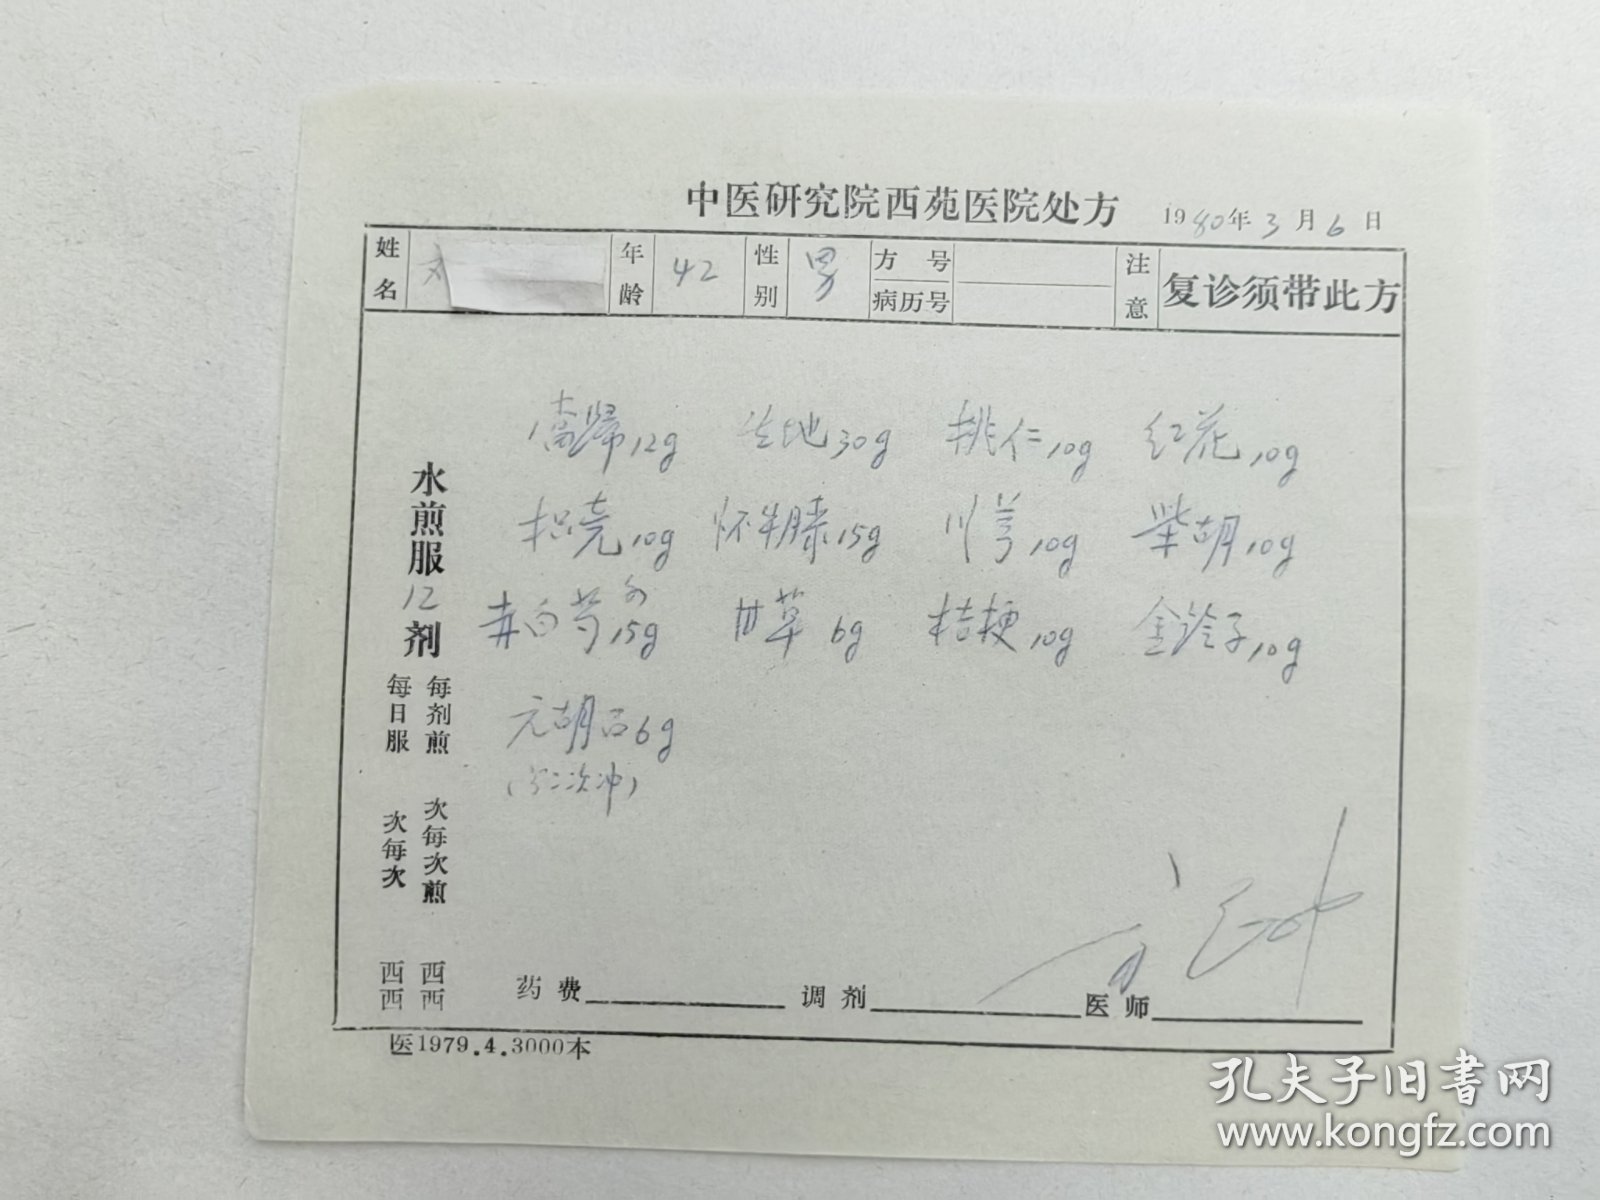 中医研究院西苑医院处方 1980年3月6日
姓名 年龄 42 性别 男 方号 病历号 注意 复诊须带此方
當歸12g 生地30g 桃仁10g 红花10g
枳壳10g 怀牛膝15g 川芎10g 柴胡10g
赤白芍各15g 甘草6g 桔梗10g 金铃子10g
元胡面6g
(分二次冲)
水煎服12剂
每剂煎 次每次煎 西西
每日服 次每次 西西
药费 调剂 医师
医1979.4.3000本
孔夫子旧书网
www.kongfz.com